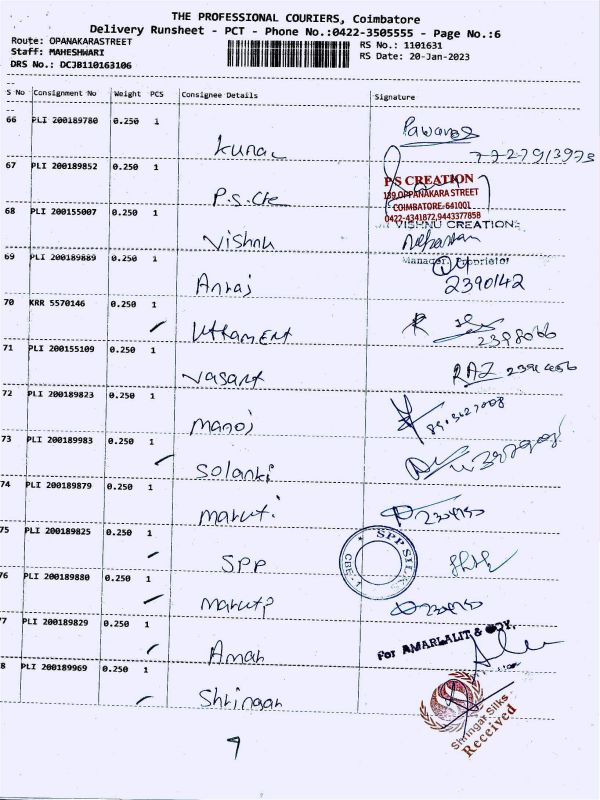 THE PROFESSIONAL COURIERS, Coimbatore
Delivery Runsheet - PCT - Phone No.:0422-3505555 - Page No.:6
Route: OPANAKARASTREET
RS No.: 1101631
Staff: MAHESHWARI
RS Date: 20-Jan-2023
DRS No.: DCJB110163106
S No Consignment No Weight PCS Consignee Details Signature
66 PLI 200189780 0.250 1 Kunal Pawan
7727913973
67 PLI 200189852 0.250 1 P.S.Cre
P S CREATION
139, OPPANAKARA STREET
COIMBATORE-641001
0422-4341872,9443377858
68 PLI 200155007 0.250 1 Vishnu
VISHNU CREATIONS
Manager. Proprietor
69 PLI 200189889 0.250 1 Anraj
2390142
70 KRR 5570146 0.250 1 Uttam.Ent
2398066
71 PLI 200155109 0.250 1 Vasant RAJ
72 PLI 200189823 0.250 1 Manoj
73 PLI 200189983 0.250 1 Solanki
74 PLI 200189879 0.250 1 Maruti
75 PLI 200189825 0.250 1 SPP
SPP SILKS
CBE-1
76 PLI 200189880 0.250 1 Maruti
77 PLI 200189829 0.250 1 Amar
For AMARLALIT & COY.
8 PLI 200189969 0.250 1 Shringar
Shringar Silks
Received